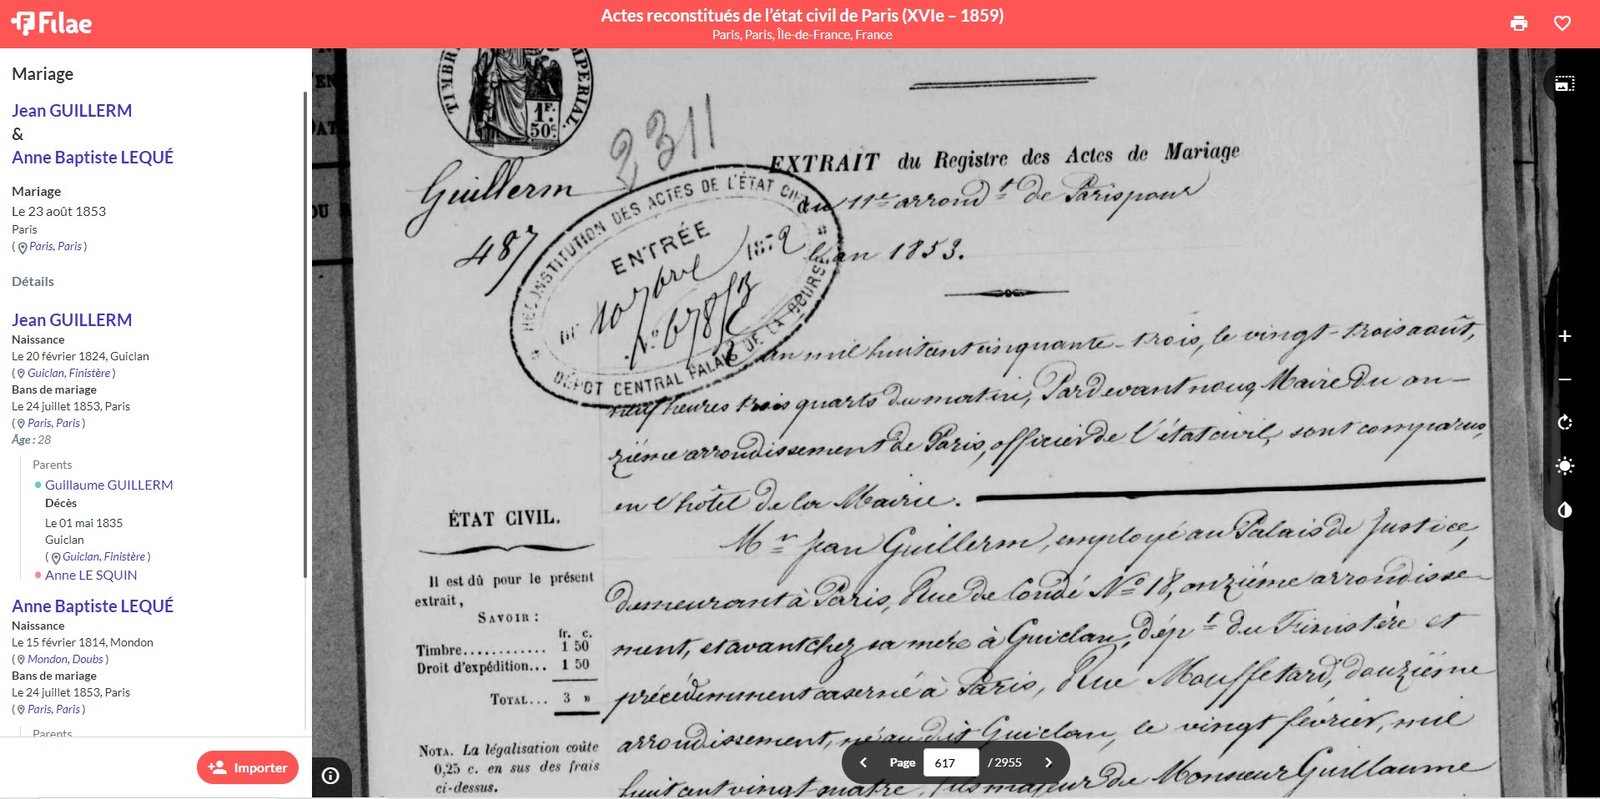 Filae
Actes reconstitués de l'état civil de Paris (XVIe – 1859)
Paris, Paris, Île-de-France, France
Mariage
Jean GUILLERM
&
Anne Baptiste LEQUÉ
Mariage
Le 23 août 1853
Paris
( Paris, Paris )
Détails
Jean GUILLERM
Naissance
Le 20 février 1824, Guiclan
( Guiclan, Finistère )
Bans de mariage
Le 24 juillet 1853, Paris
( Paris, Paris )
Âge : 28
Parents
Guillaume GUILLERM
Décès
Le 01 mai 1835
Guiclan
( Guiclan, Finistère )
Anne LE SQUIN
Anne Baptiste LEQUÉ
Naissance
Le 15 février 1814, Mondon
( Mondon, Doubs )
Bans de mariage
Le 24 juillet 1853, Paris
( Paris, Paris )
Parents
Importer
TIMBRE
IMPERIAL.
1F.
50c.
2311
Guillerm
487
RECONSTITUTION DES ACTES DE L'ÉTAT CIVIL
ENTRÉE
du 10 7bre 1872
N° 678/3
DÉPOT CENTRAL PALAIS DE LA BOURSE
EXTRAIT du Registre des Actes de Mariage
du 11e arrondt de Paris pour
l'an 1853.
an mil huit cent cinquante-trois, le vingt-trois août,
neuf heures trois quarts du matin, Pardevant nous, Maire du on-
zième arrondissement de Paris, officier de l'état civil, sont comparus,
en l'hôtel de la Mairie.
Mr Jean Guillerm, employé au Palais de Justice,
demeurant à Paris, Rue de Condé No 18, onzième arrondisse-
ment, et avant chez sa mère à Guiclan, dépt du Finistère et
précédemment caserné à Paris, Rue Mouffetard, douzième
arrondissement, né au dit Guiclan, le vingt février, mil
huit cent vingt quatre, fils majeur de Monsieur Guillaume
ÉTAT CIVIL.
Il est dû pour le présent
extrait,
SAVOIR :
fr. c.
Timbre............ 1 50
Droit d'expédition... 1 50
TOTAL... 3 »
NOTA. La légalisation coûte
0,25 c. en sus des frais
ci-dessus.
Page 617 / 2955